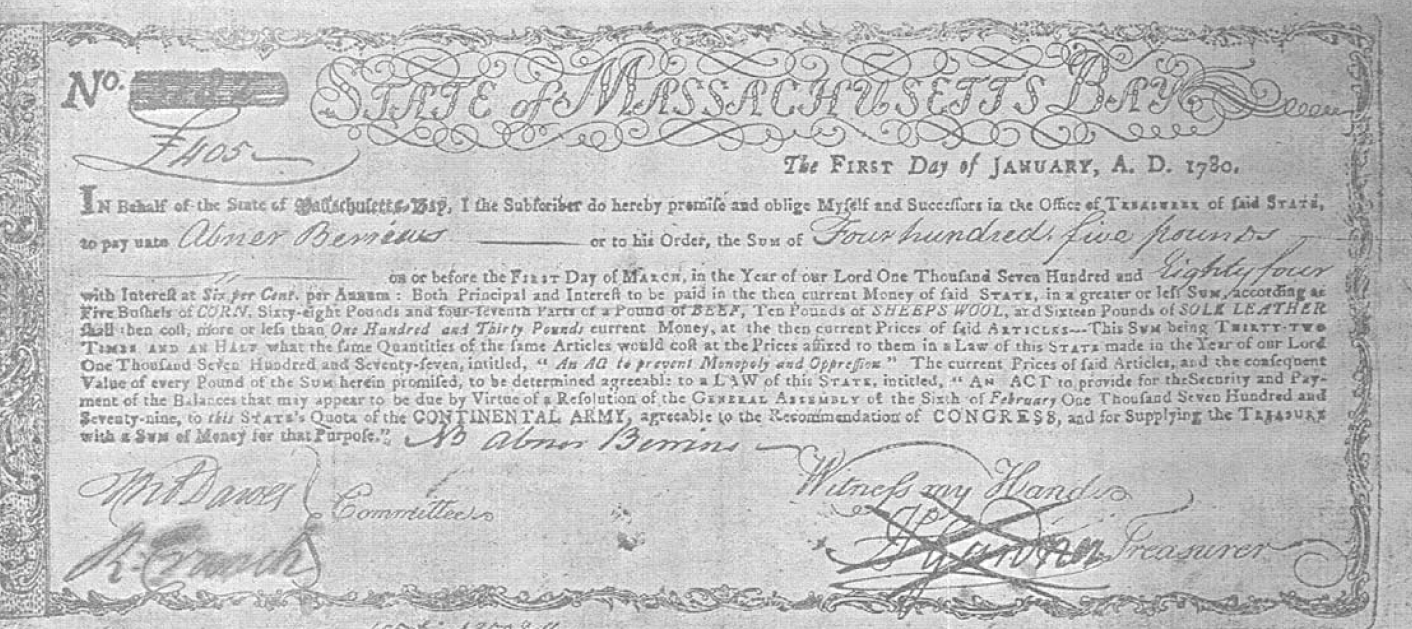 No.
STATE of MASSACHUSETTS BAY
£405
The FIRST Day of JANUARY, A. D. 1780.
IN Behalf of the State of Massachusetts-Bay, I the Subſcriber do hereby promiſe and oblige Myſelf and Succeſſors in the Office of TREASURER of ſaid STATE,
to pay unto Abner or to his Order, the SUM of Four hundred, five pounds
on or before the FIRST Day of MARCH, in the Year of our Lord One Thouſand Seven Hundred and Eighty four
with Intereſt at Six per Cent. per Annum : Both Principal and Intereſt to be paid in the then current Money of ſaid STATE, in a greater or leſſ SUM, according as
Five Buſhels of CORN, Sixty-eight Pounds and four-ſeventh Parts of a Pound of BEEF, Ten Pounds of SHEEPS WOOL, and Sixteen Pounds of SOLE LEATHER
ſhall then coſt, more or leſs than One Hundred and Thirty Pounds current Money, at the then current Prices of ſaid ARTICLES---This SUM being THIRTY-TWO
TIMES AND AN HALF what the ſame Quantities of the ſame Articles would coſt at the Prices affixed to them in a Law of this STATE made in the Year of our Lord
One Thouſand Seven Hundred and Seventy-ſeven, intitled, " An Act to prevent Monopoly and Oppreſſion." The current Prices of ſaid Articles, and the conſequent
Value of every Pound of the SUM herein promiſed, to be determined agreeable to a LAW of this STATE, intitled, " AN ACT to provide for the Security and Pay-
ment of the Balances that may appear to be due by Virtue of a Reſolution of the GENERAL ASSEMBLY of the Sixth of February One Thouſand Seven Hundred and
Seventy-nine, to this STATE's Quota of the CONTINENTAL ARMY, agreeable to the Recommendation of CONGRESS, and for Supplying the TREASURY
with a SUM of Money for that Purpoſe." NB Abner
Witneſs my Hand
Dawes
Committee
R. Cranch
Treasurer